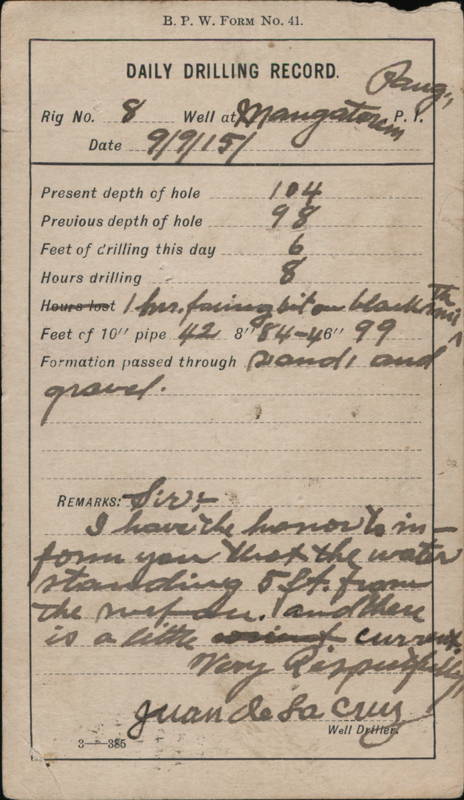 B. P. W. FORM No. 41.
DAILY DRILLING RECORD.
Pang.,
Rig No. 8 Well at Mangatarem P. I.
Date 9/9/15/
Present depth of hole 104
Previous depth of hole 98
Feet of drilling this day 6
Hours drilling 8
Hours lost 1 hrs. facing bit on black Th
smi
Feet of 10" pipe 42 8" 84-4 6" 99
Formation passed through sand, and
gravel.
REMARKS: Sir:-
I have the honor to in-
form you that the water
standing 5 ft. from
the surface. and there
is a little current.
Very Respectfully,
Juan de la Cruz
Well Driller.
3—385